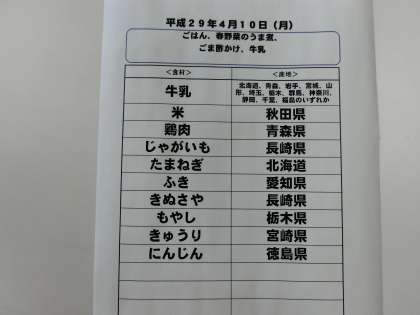 平成２９年４月１０日（月）
ごはん、春野菜のうま煮、
ごま酢かけ、牛乳
＜食材＞ ＜産地＞
牛乳 北海道、青森、岩手、宮城、山
形、埼玉、栃木、群馬、神奈川、
静岡、千葉、福島のいずれか
米 秋田県
鶏肉 青森県
じゃがいも 長崎県
たまねぎ 北海道
ふき 愛知県
きぬさや 長崎県
もやし 栃木県
きゅうり 宮崎県
にんじん 徳島県